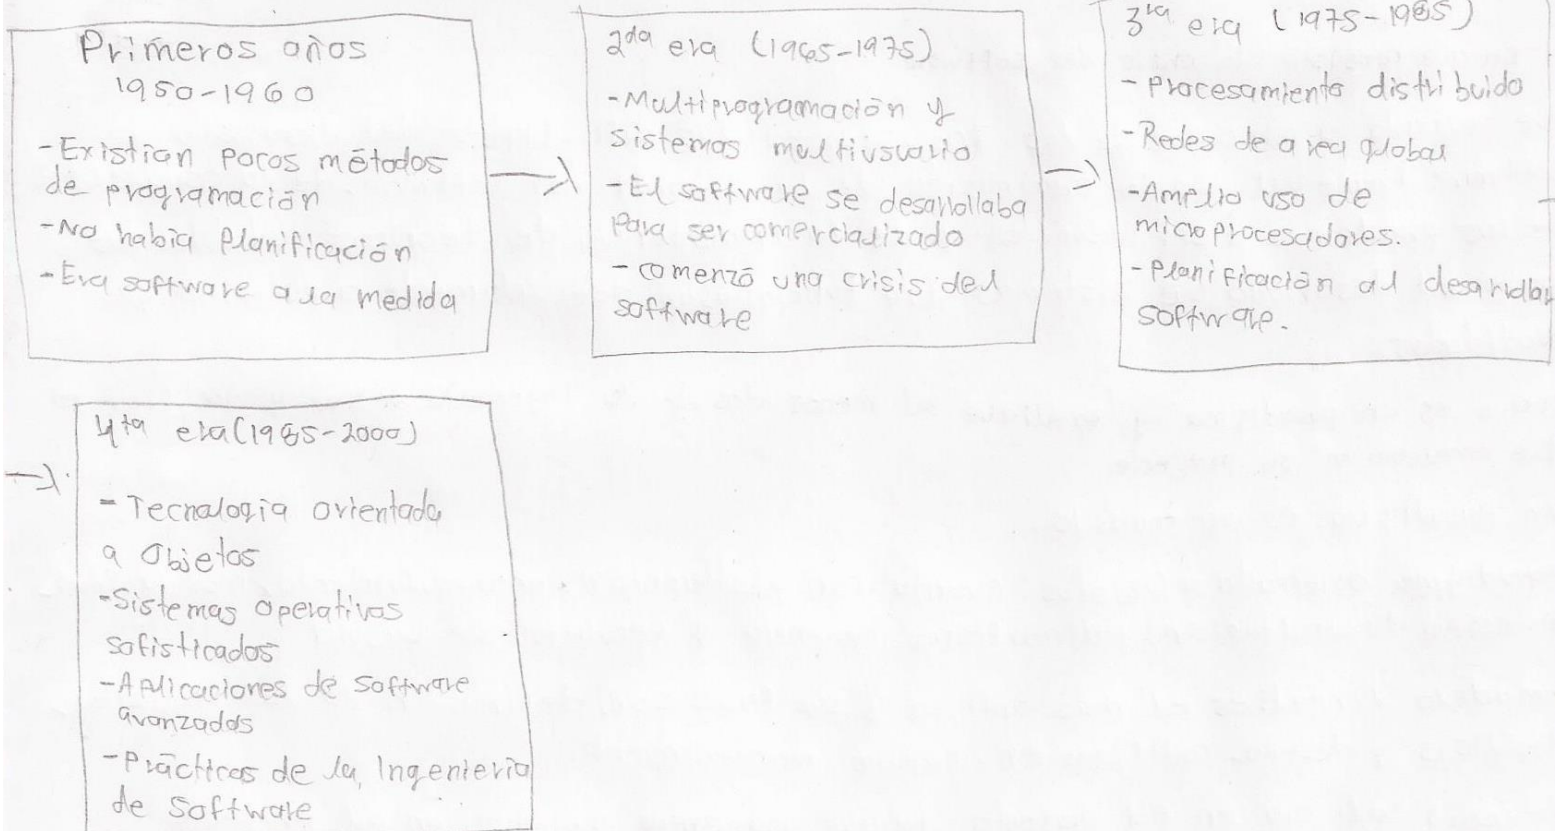 Primeros años
1950-1960
-Existian pocos métodos
de programación
-No había planificación
-Era software a la medida
2da era (1965-1975)
-Multiprogramación y
sistemas multiusuario
-El software se desarrollaba
para ser comercializado
-comenzó una crisis del
software
3ra era (1975-1985)
-Procesamiento distribuido
-Redes de area global
-Amplio uso de
microprocesadores.
-Planificación al desarrollar
software.
4ta era(1985-2000)
-Tecnologia orientada
a Objetos
-Sistemas operativos
sofisticados
-Aplicaciones de software
avanzadas
-Prácticas de la Ingenieria
de software